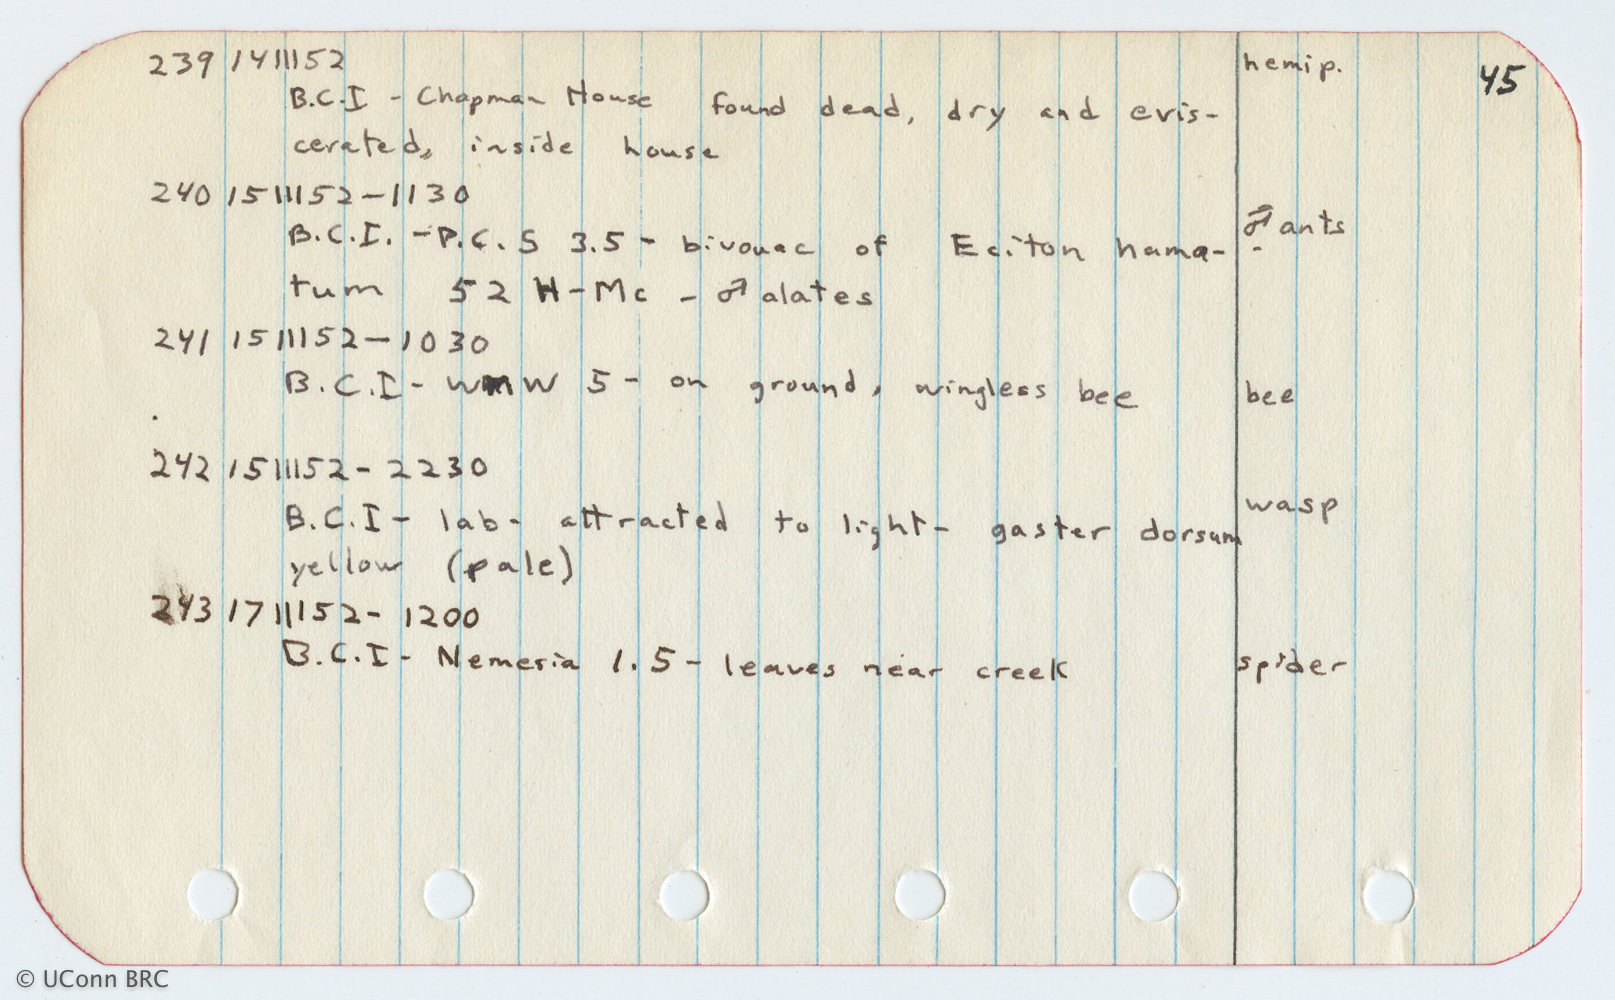 45
239 14III52 hemip.
B.C.I - Chapman House found dead, dry and evis-
cerated, inside house
240 15III52-1130
B.C.I. - P.C.S 3.5 - bivouac of Eciton hama- ♂ ants
tum 52 H-Mc - ♂ alates
241 15III52-1030
B.C.I - WMW 5 - on ground, wingless bee bee
242 15III52-2230
B.C.I - lab - attracted to light - gaster dorsum wasp
yellow (pale)
243 17III52-1200
B.C.I - Nemesia 1.5 - leaves near creek spider
© UConn BRC